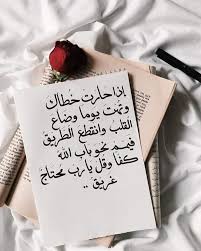 إذا حارت خطاك
وتهت يوما وضاع
القلب وانقطع الطريق
فيمم نحو باب الله
كفا وقل يارب محتاج
غريق ..